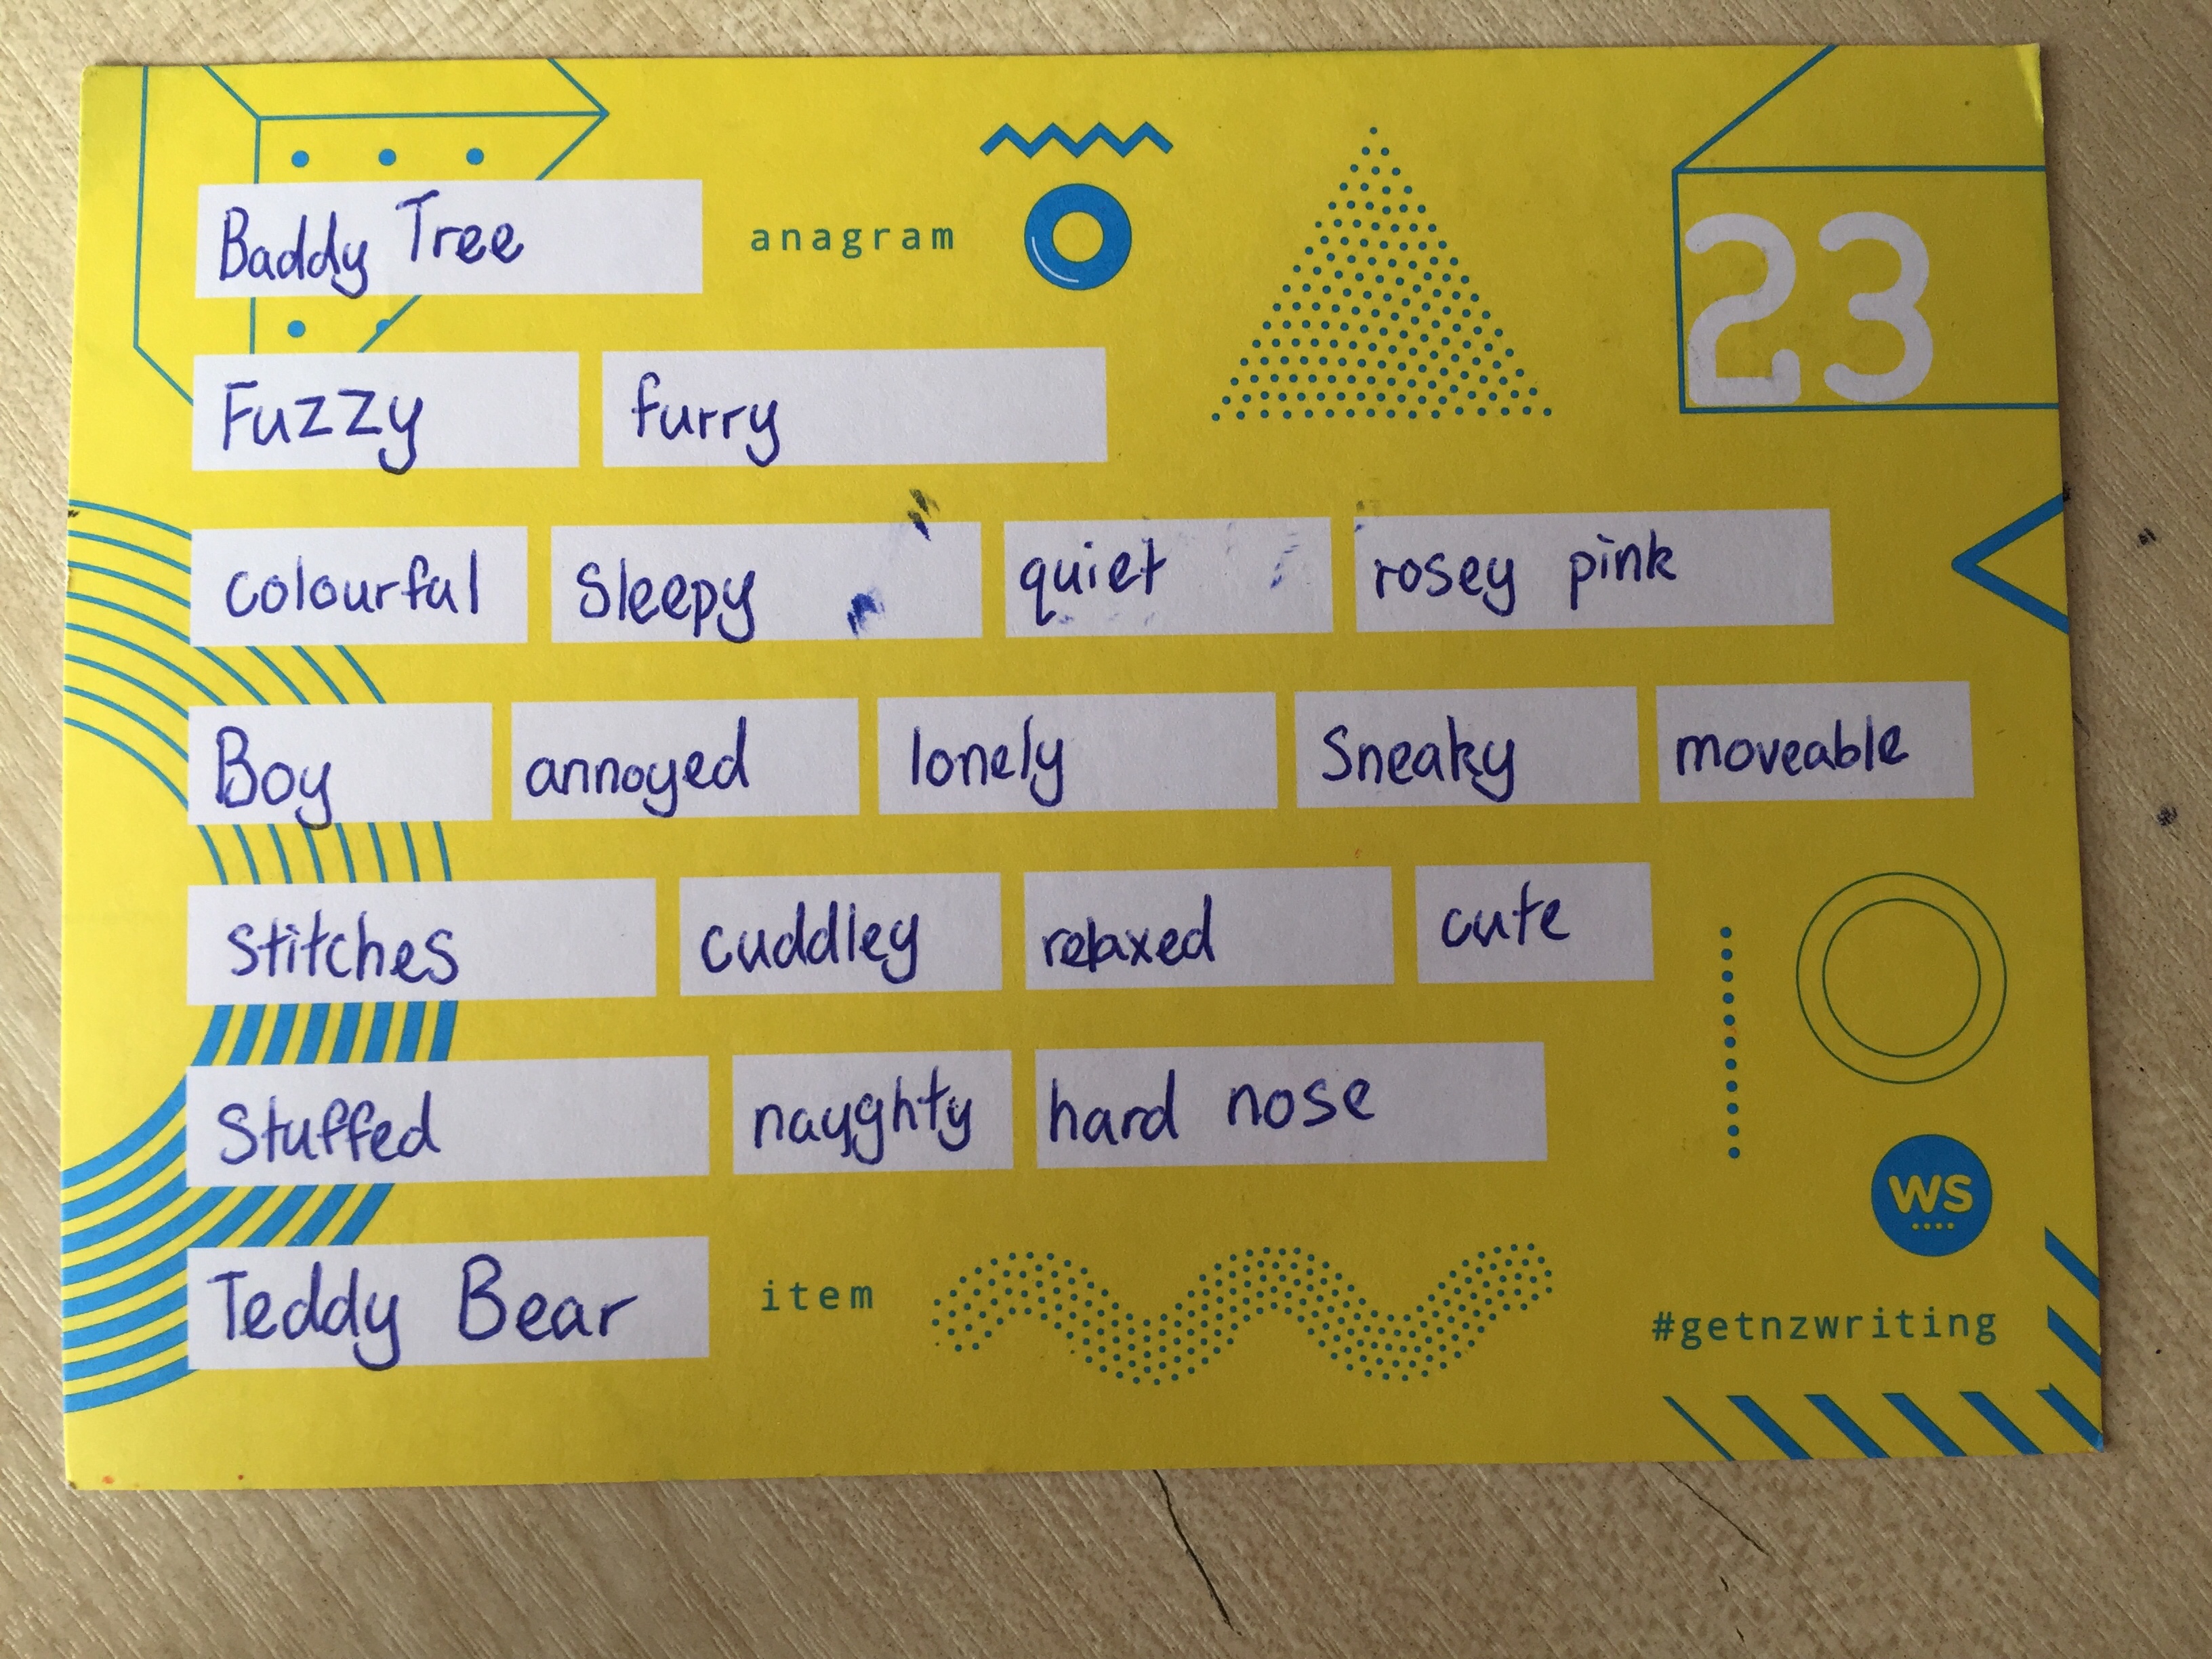 Baddy Tree anagram 23
Fuzzy furry
colourful Sleepy quiet rosey pink
Boy annoyed lonely Sneaky moveable
Stitches cuddley relaxed cute
Stuffed nayghty hard nose
WS
Teddy Bear item #getnzwriting